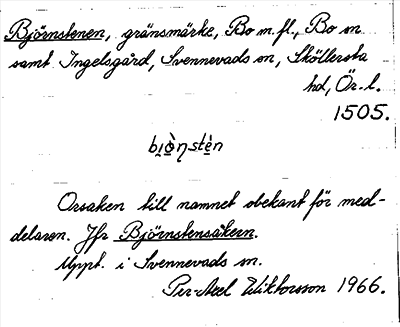 Björnstenen, gränsmärke, Bo m.fl., Bo sn
samt Ingelsgård, Svennevads sn, Sköllersta
hd, Ör. l.
1505.
bi̯ò̱n̥stè̱n
Orsaken till namnet obekant för med-
delaren. Jfr Björnstensåkern.
Uppt. i Svennevads sn.
Per-Axel Wiktorsson 1966.